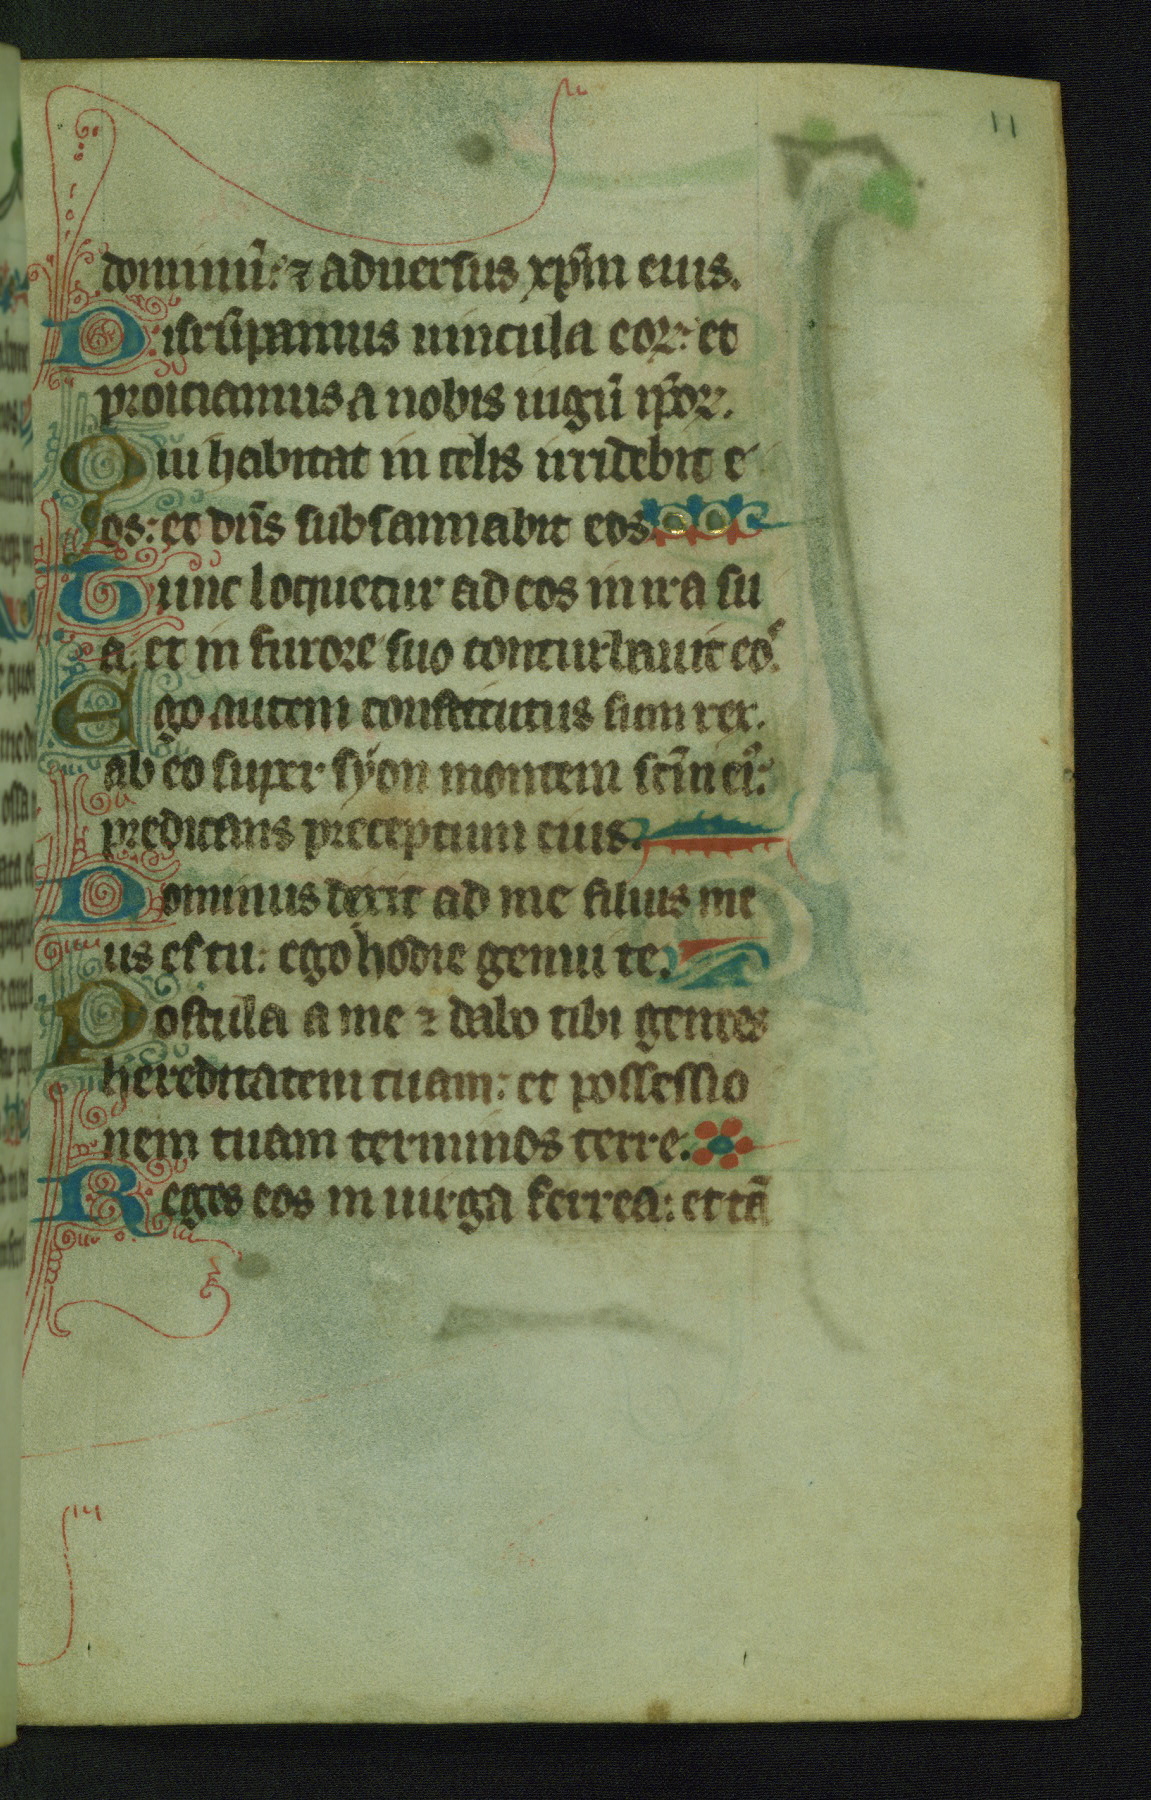 11
dominū: ⁊ aduersus xp̄m eius.
Disrūpamus uincula eoꝝ: et
proiciamus a nobis iugū ip̄oꝝ.
Qui habitat in celis irridebit e
os: et dn̄s subsannabit eos.
Tunc loquetur ad eos in ira su
a: et in furore suo conturbauit eos.
Ego autem constitutus sum rex.
ab eo super syon montem sc̄m ei᷒:
predicans preceptum eius.
Dominus dixit ad me filius me
us es tu: ego hodie genui te.
Postula a me ⁊ dabo tibi gentes
hereditatem tuam: et possessio
nem tuam terminos terre.
Reges eos in uirga ferrea: et tā